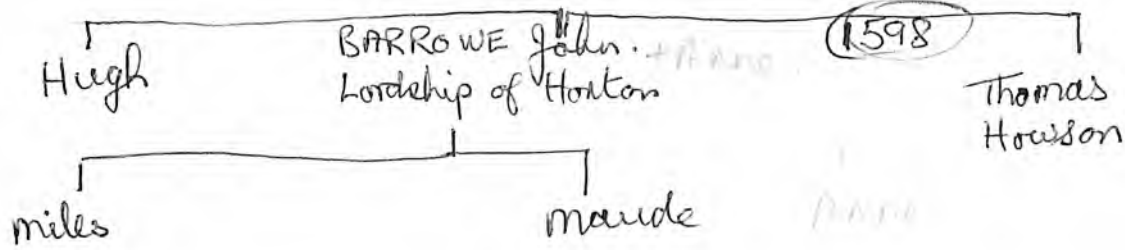 Hugh
BARROWE John. + Anne
Lordship of Horton
1598
Thomas
Howson
Miles
Maude